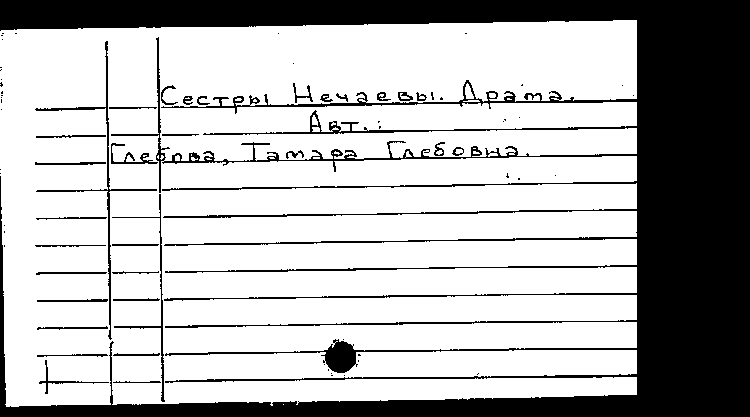 Сестры Нечаевы. Драма.
Авт.:
Глебова, Тамара Глебовна.